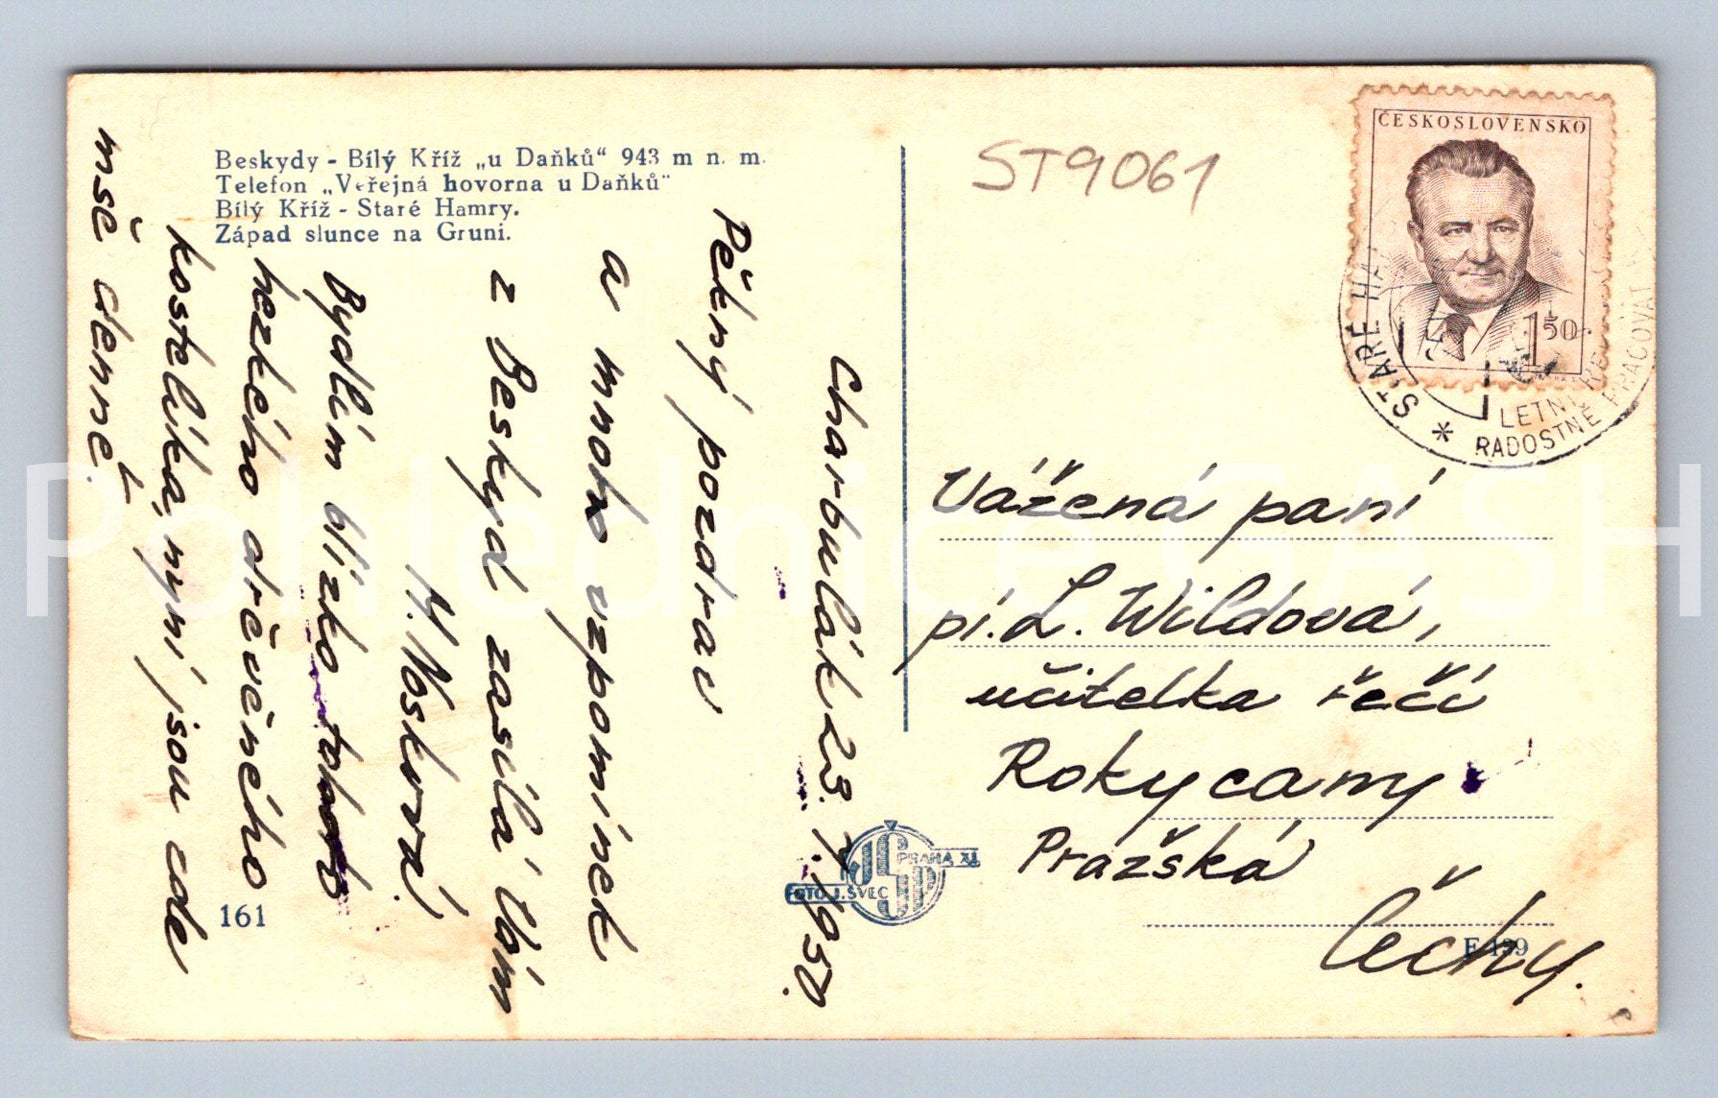 Beskydy - Bílý Kříž „u Daňků“ 943 m n. m.
Telefon „Veřejná hovorna u Daňků“
Bílý Kříž - Staré Hamry.
Západ slunce na Gruni.
Charbulák 23.7.1950.
Pěkný pozdrav
a mnoho vzpomínek
z Beskyd zasílá Vám
M. Nosková.
Bydlím blízko tohoto
hezkého dřevěného
kostelíka, nyní jsou zde
mše denně.
161
ST9061
ČESKOSLOVENSKO
1 50
STARÉ HA
LETNÍ RE
RADOSTNĚ PRACOVAT
*
Vážená paní
pí. L. Wildová,
učitelka řečí
Rokycany
Pražská
Čechy.
PRAHA XI.
FOTO J. ŠVEC
Pohlednice GASH